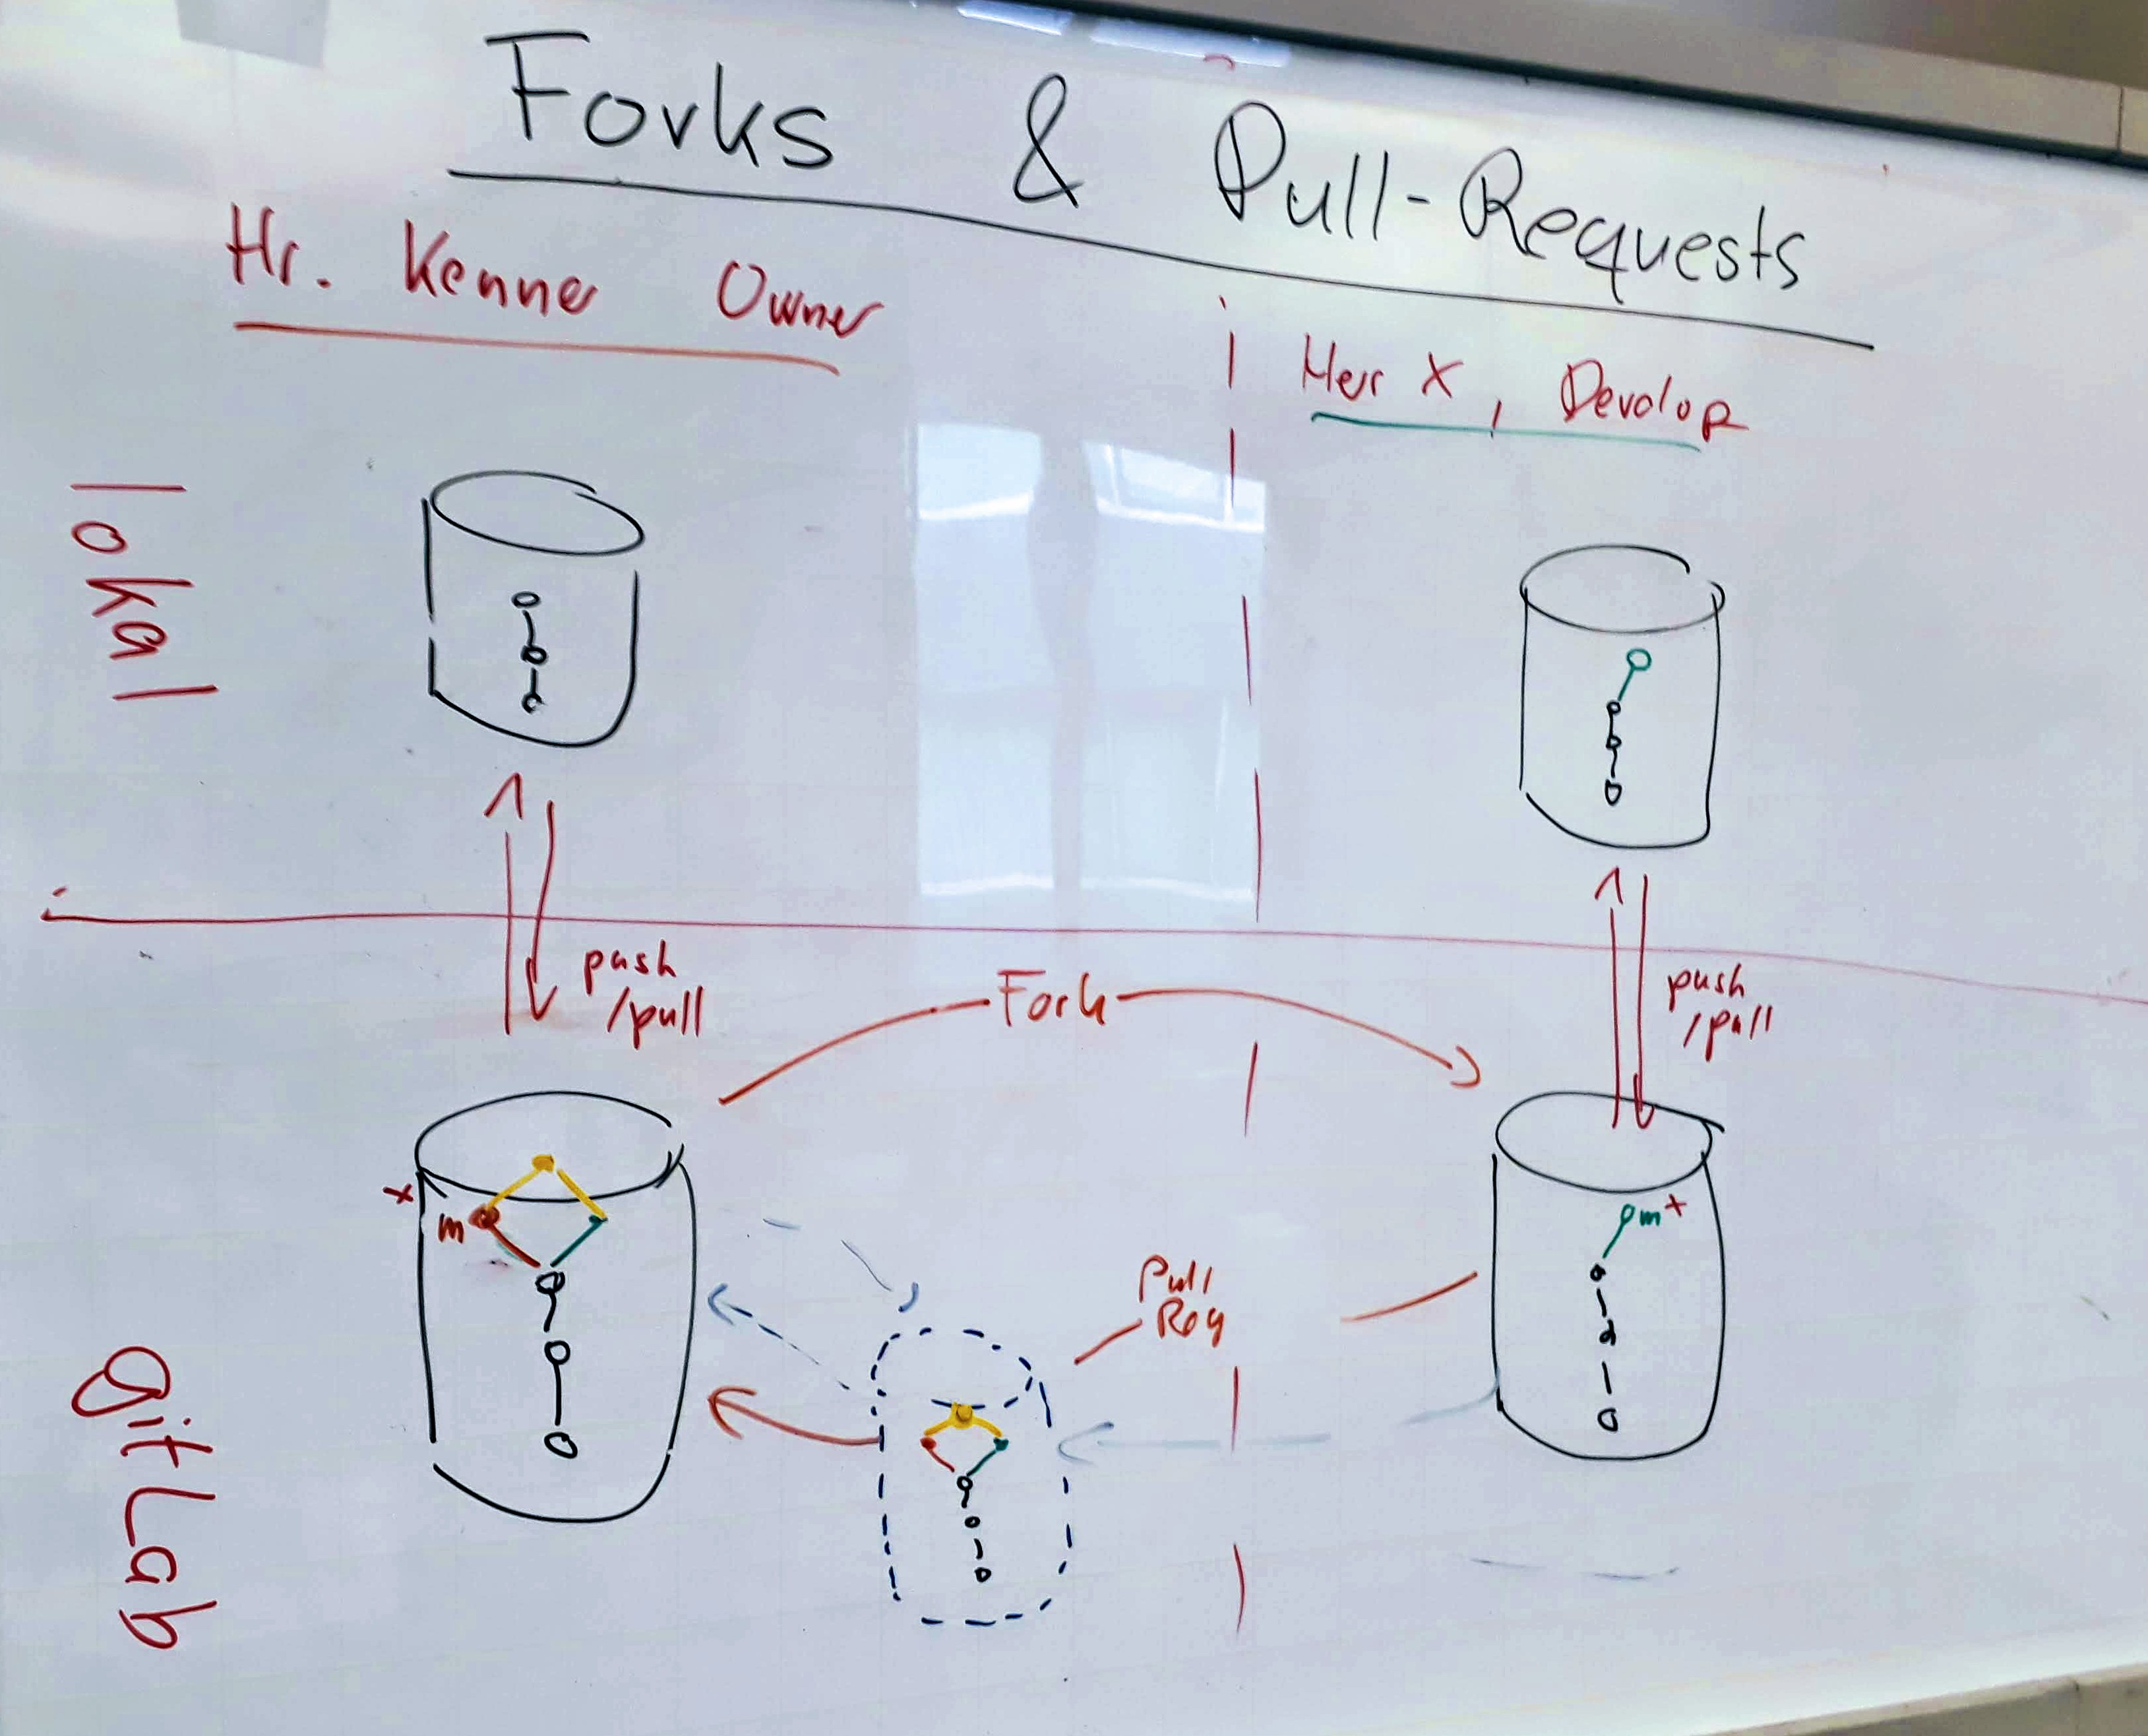 Forks & Pull-Requests
Hr. Kenner Owner
Herr X, Develop
lokal
push
/pull
Fork
push
/pull
m
m
Pull
Req
GitLab